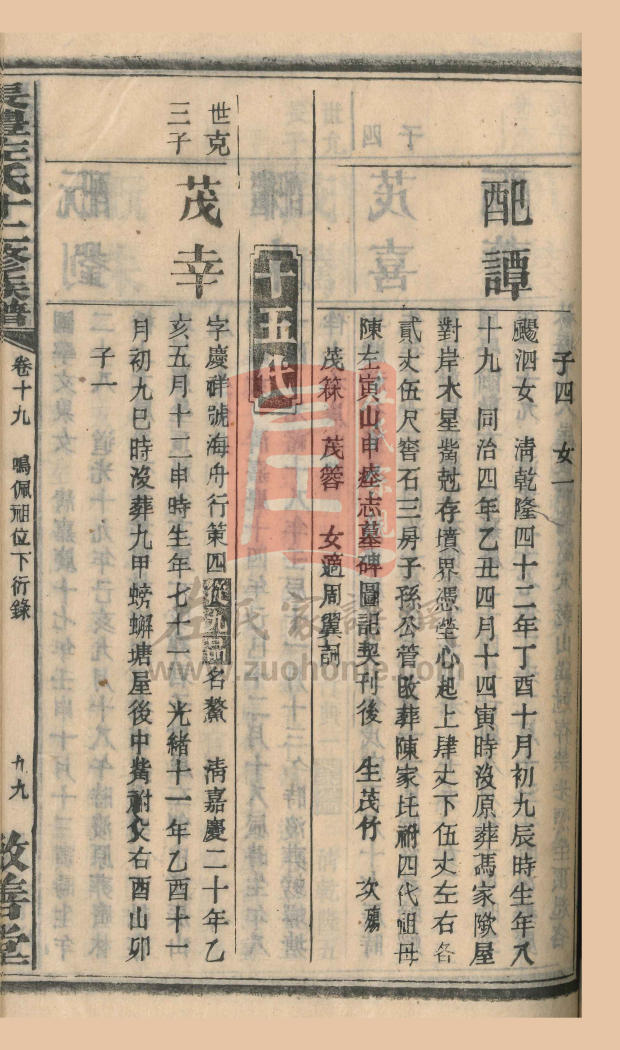 子四 女一
配譚
颺泗女 清乾隆四十二年丁酉十月初九辰時生年八
十九 同治四年乙丑四月十四寅時沒原葬馮家墩屋
對岸木星嘴尅存墳界憑塋心起上肆丈下伍丈左右各
貳丈伍尺窖石三房子孫公管改葬陳家坵祔四代祖母
陳左寅山申塟志墓碑圖記契刊後 生茂竹 次殤
茂箖 茂簩 女適周翼訶
十五代
世克
三子
茂幸
字慶祥號海舟行第四從九品名鰲 清嘉慶二十年乙
亥五月十二申時生年七十一 光緒十一年乙酉十一
月初九巳時沒葬九甲螃蠏塘屋後中嘴祔父右酉山卯
子一
長豐左氏十二修族譜
卷十九 鳴佩祖位下衍錄
九九
敦善堂
左氏家譜網
www.zuohome.com